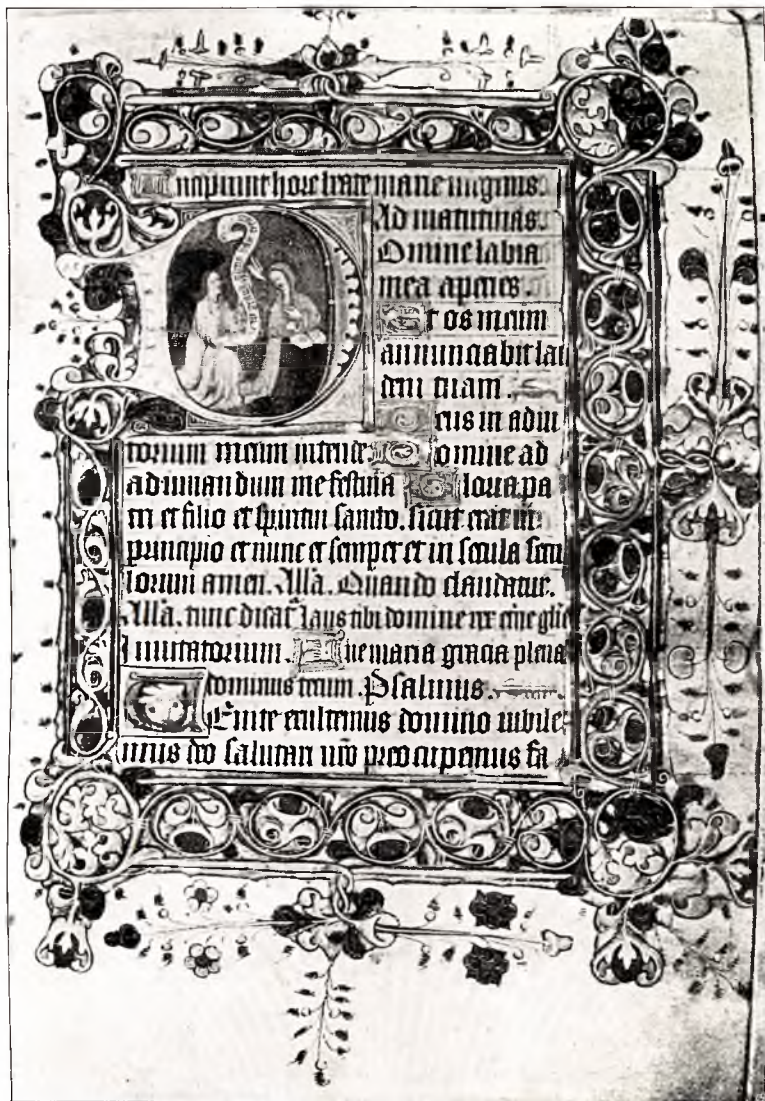 Incipiunt hore beate marie virginis.
Ad matutinas.
Domine labia
mea aperies.
Et os meum
annunciabit lau
dem tuam.
Deus in adiu
torium meum intende Domine ad
adiuuandum me festina Gloria pa
tri et filio et spiritui sancto. sicut erat in
principio et nunc et semper et in secula secu
lorum amen. Alla. Quando claudatur.
Alla. tunc dicat Laus tibi domine rex eterne glie
Inuitatorium. Aue maria gracia plena
dominus tecum. Psalmus.
Uenite exultemus domino iubile
mus deo salutari nro preocupemus fa